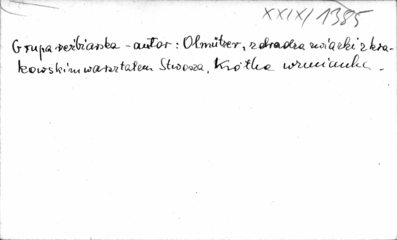 XXIX/1385
Grupa rzeźbiarska - autor: Olmützer, zdradza związki z kra-
kowskim warsztatem Stwosza. Krótka wzmianka.